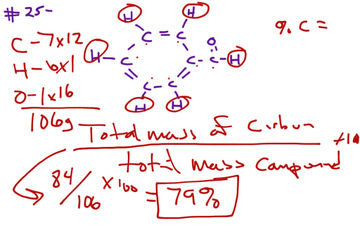 #25-
C-7x12
H-6x1
O-1x16
106g
H H
C=C
H-C C-C-H
O
C-C
H H
% C =
Total mass of Carbon
total mass compound
84/106 x100 = 79%